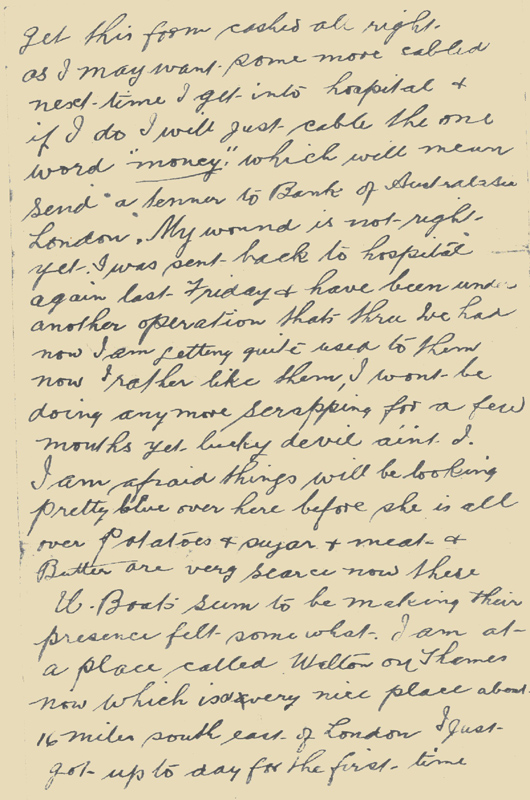 get this form cashed all right.
as I may want some more cabled
next time I get into hospital &
if I do I will just cable the one
word "money" which will mean
send "a tenner to Bank of Australasia
London". My wound is not right
yet. I was sent back to hospital
again last Friday & have been under
another operation thats three Ive had
now I am getting quite used to them
now I rather like them, I wont be
doing anymore scrapping for a few
months yet lucky devil aint I.
I am afraid things will be looking
pretty blue over here before she is all
over Potatoes & sugar & meat &
Butter are very scarce now these
U. Boats seem to be making their
presence felt somewhat. I am at
a place called Walton on Thames
now which is very nice place about
16 miles south east of London I just
got up to day for the first time